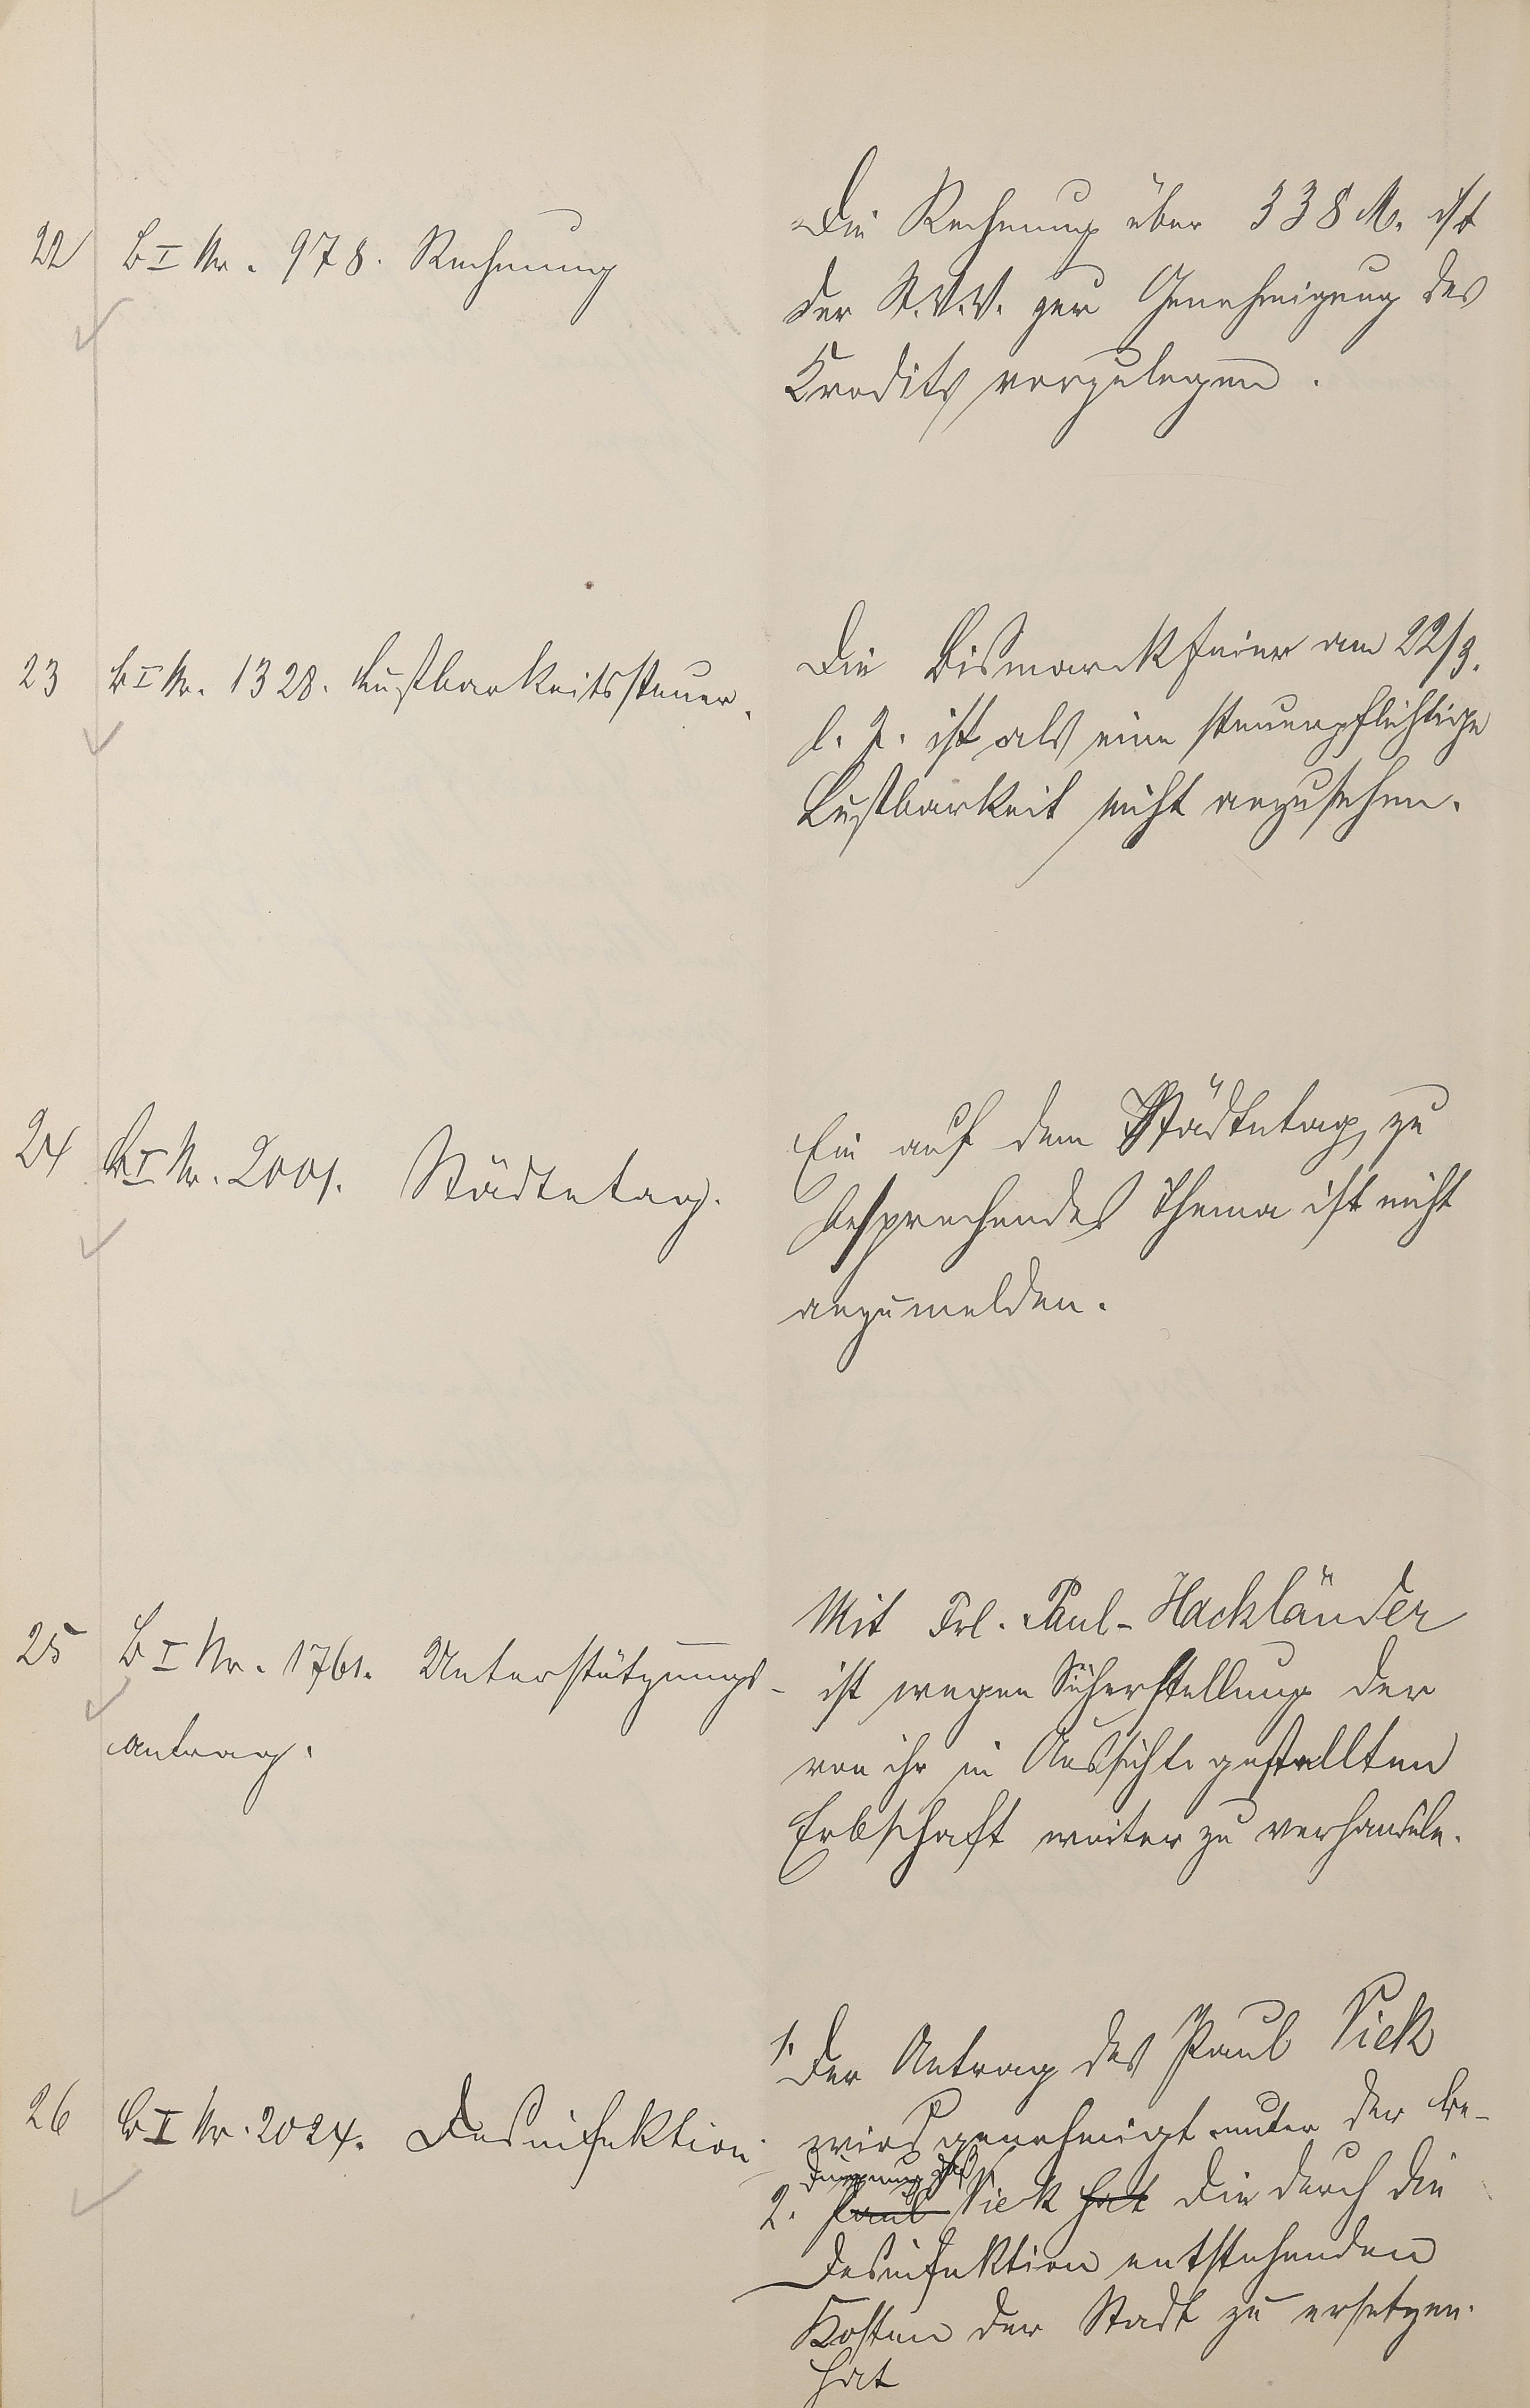 22 B I Nr. 978. Rechnung
Die Rechnung über 338 M. ist
der St.V.V. zur Genehmigung des
Kredits vorzulegen.
23 B I Nr. 1328. Lustbarkeitssteuer.
Die Bismarckfeier am 22/3.
l. J. ist als eine steuerpflichtige
Lustbarkeit nicht anzusehen.
24 B I Nr. 2001. Städtetag.
Ein auf dem Städtetag zu
besprechendes Thema ist nicht
anzumelden.
25 B I Nr. 1761. Unterstützungs-
antrag.
Mit Frl. Paul-Hackländer
ist wegen Sicherstellung der
von ihr in Aussicht gestellten
Erbschaft weiter zu verhandeln.
26 B I Nr. 2024. Desinfektion.
1. Der Antrag des Paul Vick
wird genehmigt unter der Be-
dingung daß
2. Paul Vick hat die durch die
Desinfektion entstehenden
Kosten der Stadt zu ersetzen.
hat